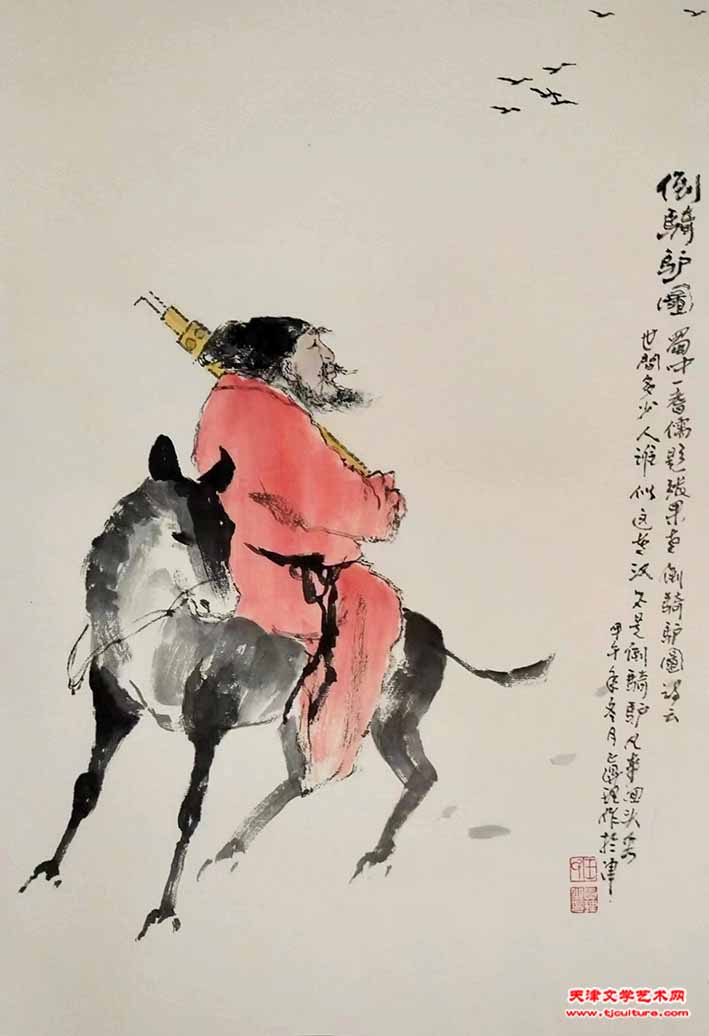 倒騎驴圖
蜀中一耆儒题张果老倒騎驴圖诗云
世間多少人谁似这老汉不是倒騎驴凡事回头看
甲午年冬月 理作於津
天津文学艺术网
www.tjculture.com